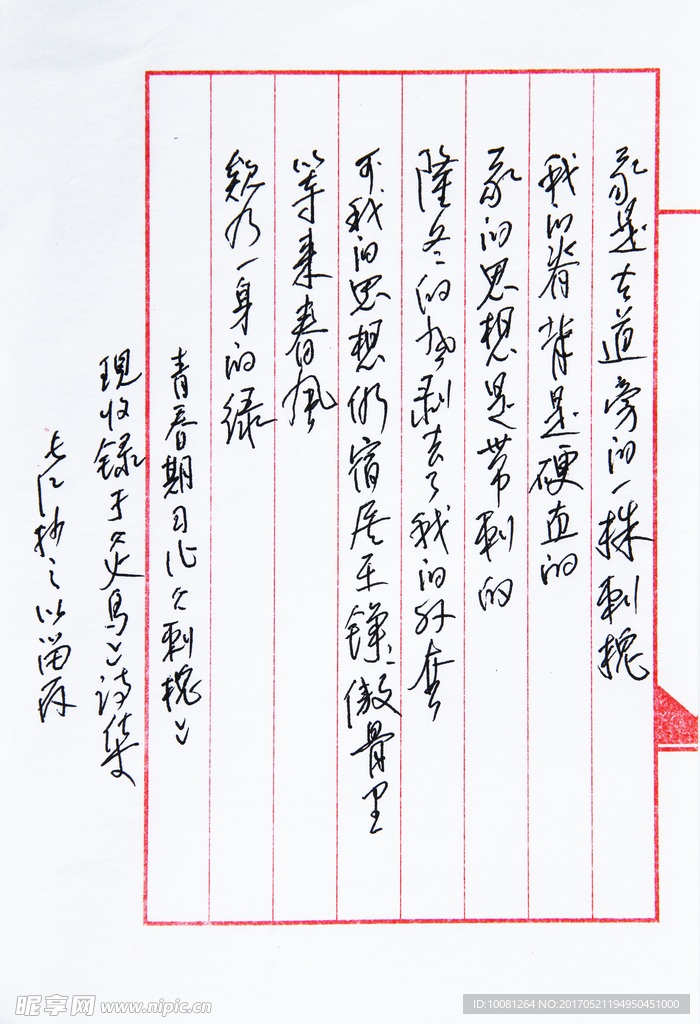 我是古道旁的一株刺槐
我的脊背是硬直的
我的思想是带刺的
隆冬的风剥去了我的外套
可我的思想仍宿居在铮铮傲骨里
等来春风
就为一身的绿
青春期习作《刺槐》
现收录于《火鸟》诗集
长江抄之以留存
昵享网 www.nipic.cn
ID:10081264 NO:20170521194950451000